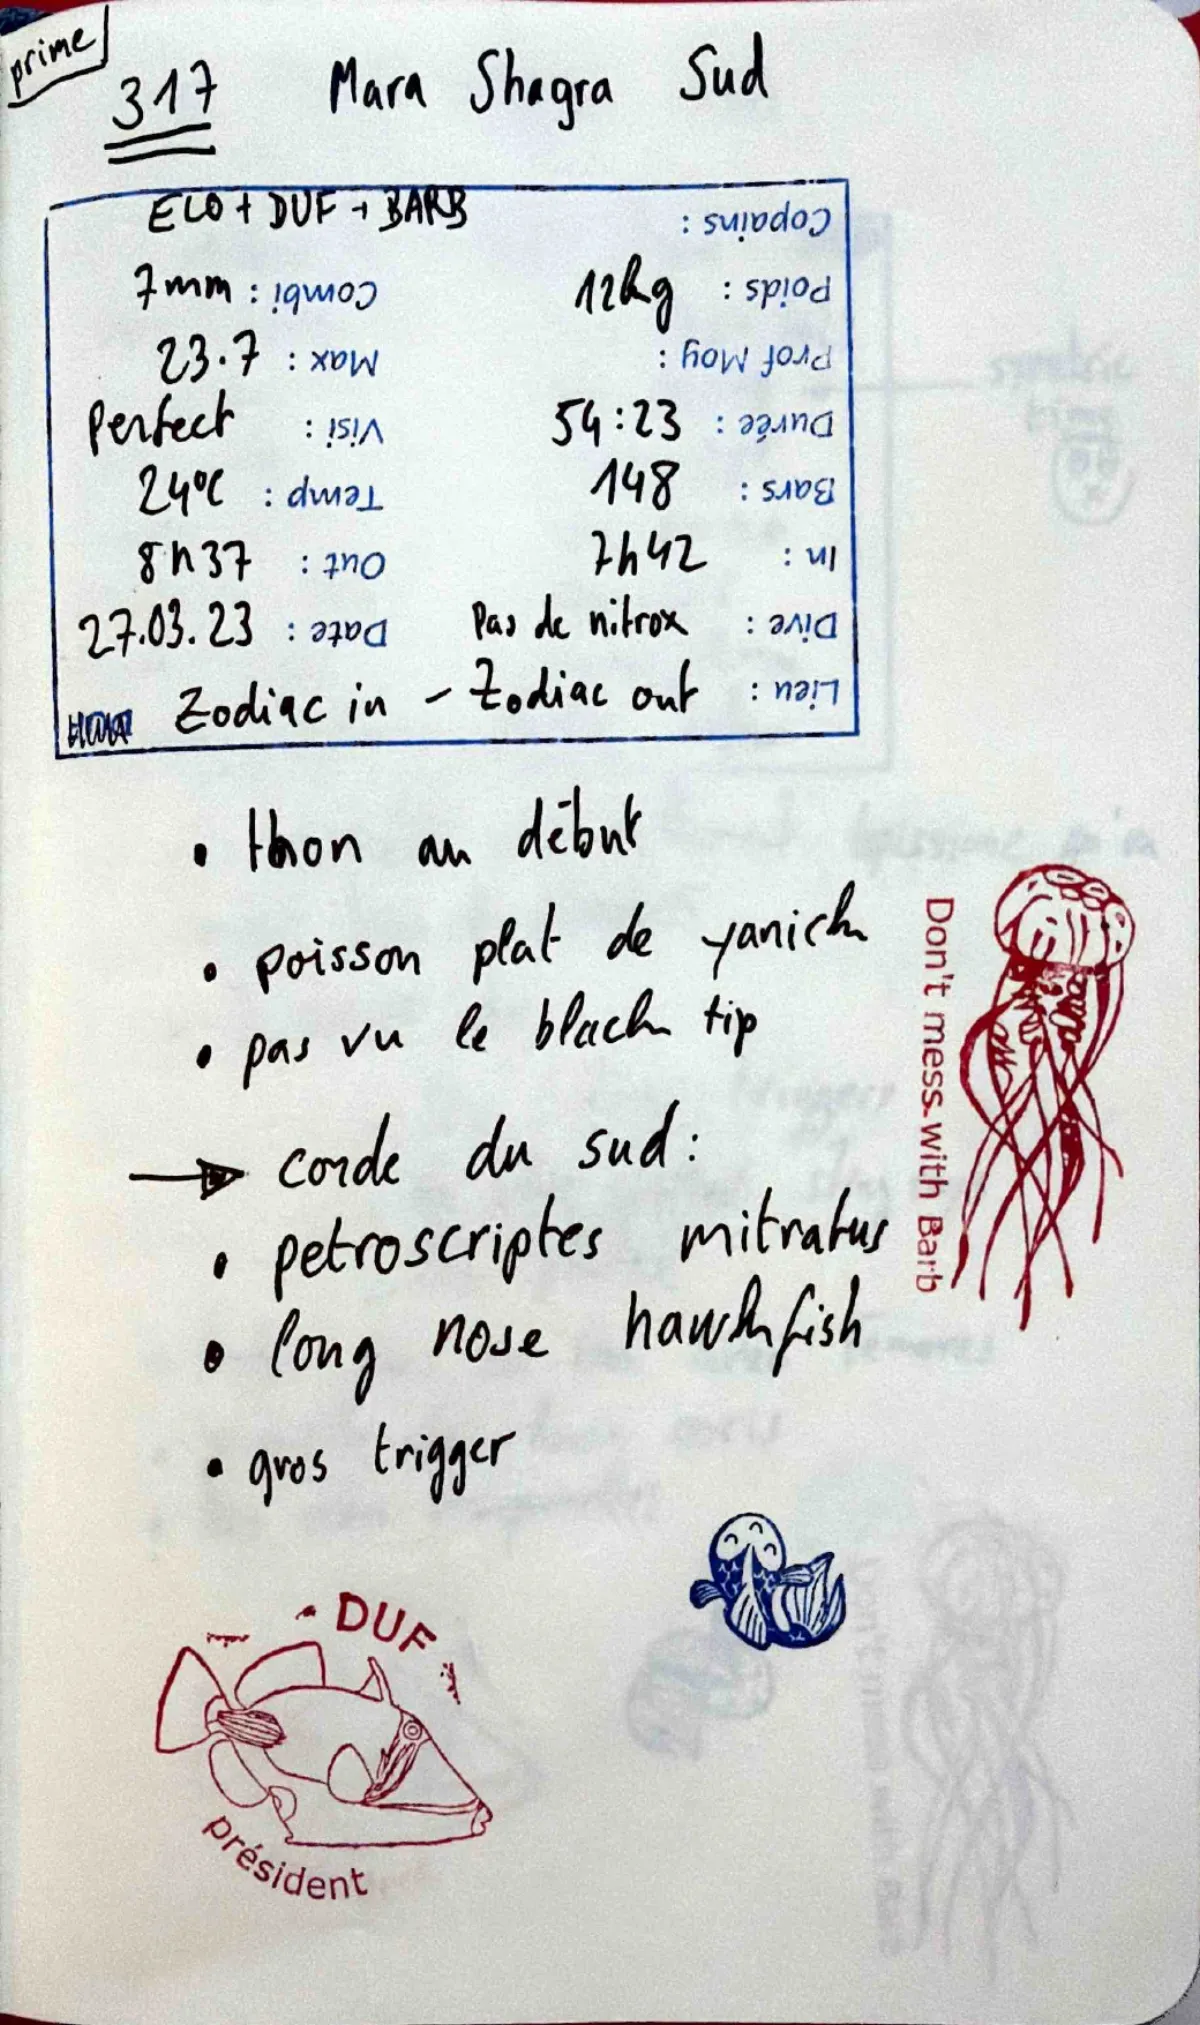 prime
317 Mara Shagra Sud
Copains : ELO + DUF + BARB
Poids : 12kg Combi : 7mm
Prof Moy : Max : 23.7
Durée : 54:23 Visi : Perfect
Bars : 148 Temp : 24°C
In : 7h42 Out : 8h37
Dive : Pas de nitrox Date : 27.03.23
Lieu : Zodiac in - Zodiac out
• thon au début
• poisson plat de yanick
• pas vu le black tip
→ corde du sud :
• petroscriptes mitratus
• long nose hawkfish
• gros trigger
Don't mess with Barb
DUF
président